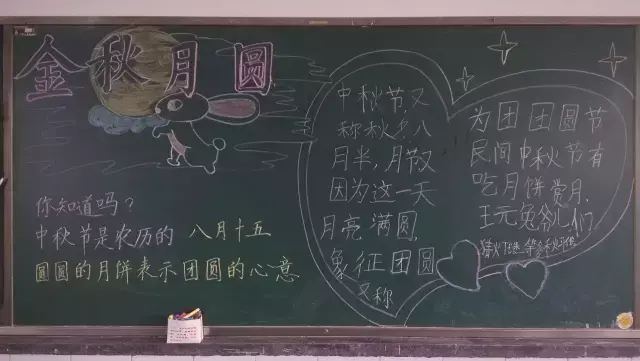 金秋月圆
你知道吗？
中秋节是农历的 八月十五
圆圆的月饼表示团圆的心意
中秋节，又
称秋夕八
月半，月节又
因为这一天
月亮满圆，
象征团圆
又称
为团团圆节
民间中秋节有
吃月饼赏月，
玩兔爷儿们
猜火